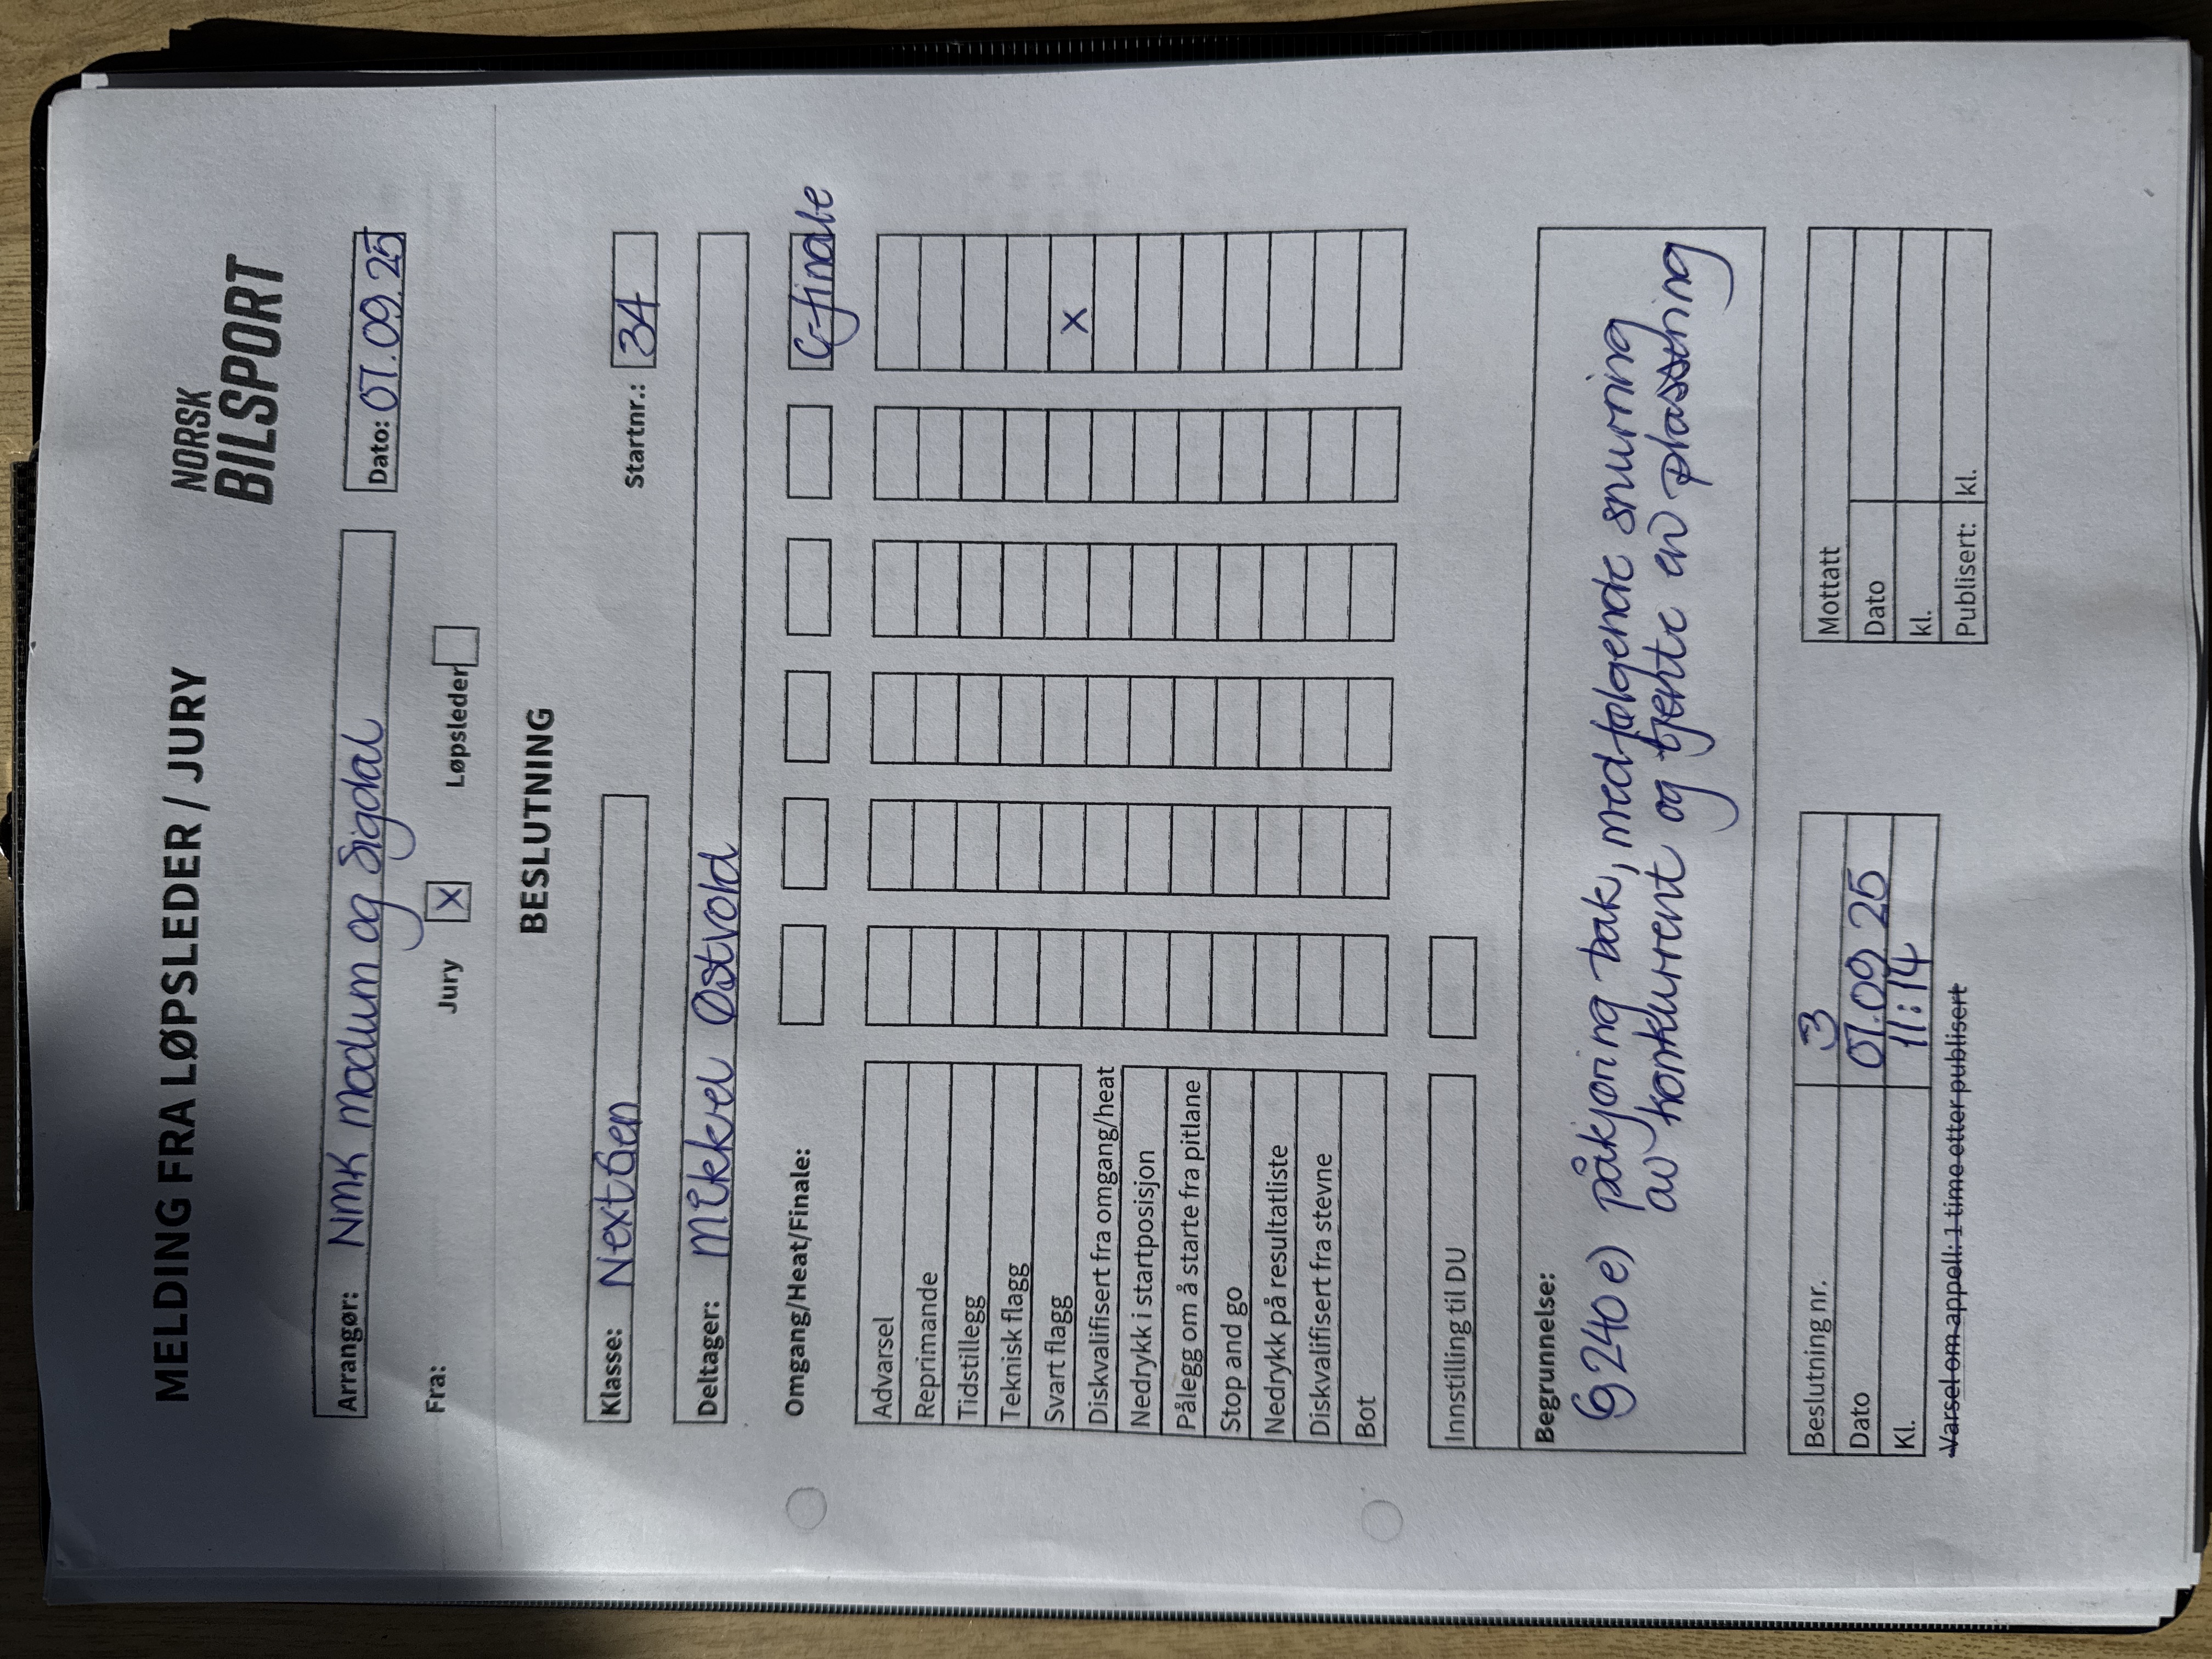 MELDING FRA LØPSLEDER / JURY
NORSK
BILSPORT
Arrangør: NMK Modum og Sigdal
Dato: 07.09.25
Fra: Jury X Løpsleder
BESLUTNING
Klasse: Nextgen
Startnr.: 34
Deltager: Mikkel Østvold
Omgang/Heat/Finale: C-finale
Advarsel
Reprimande
Tidstillegg
Teknisk flagg
Svart flagg X
Diskvalifisert fra omgang/heat
Nedrykk i startposisjon
Pålegg om å starte fra pitlane
Stop and go
Nedrykk på resultatliste
Diskvalifisert fra stevne
Bot
Innstilling til DU
Begrunnelse:
§ 240 e) påkjøring bak, medfølgende snurring
av konkurrent og tjente en plassering
Beslutning nr. 3
Dato 07.09 25
Kl. 11:14
Varsel om appell: 1 time etter publisert
Mottatt
Dato
kl.
Publisert: kl.